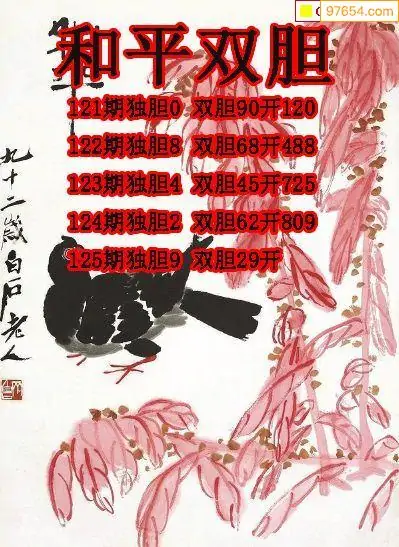 97654.com
和平双胆
121期独胆0 双胆90开120
122期独胆8 双胆68开488
123期独胆4 双胆45开725
124期独胆2 双胆62开809
125期独胆9 双胆29开
九十二岁白石老人